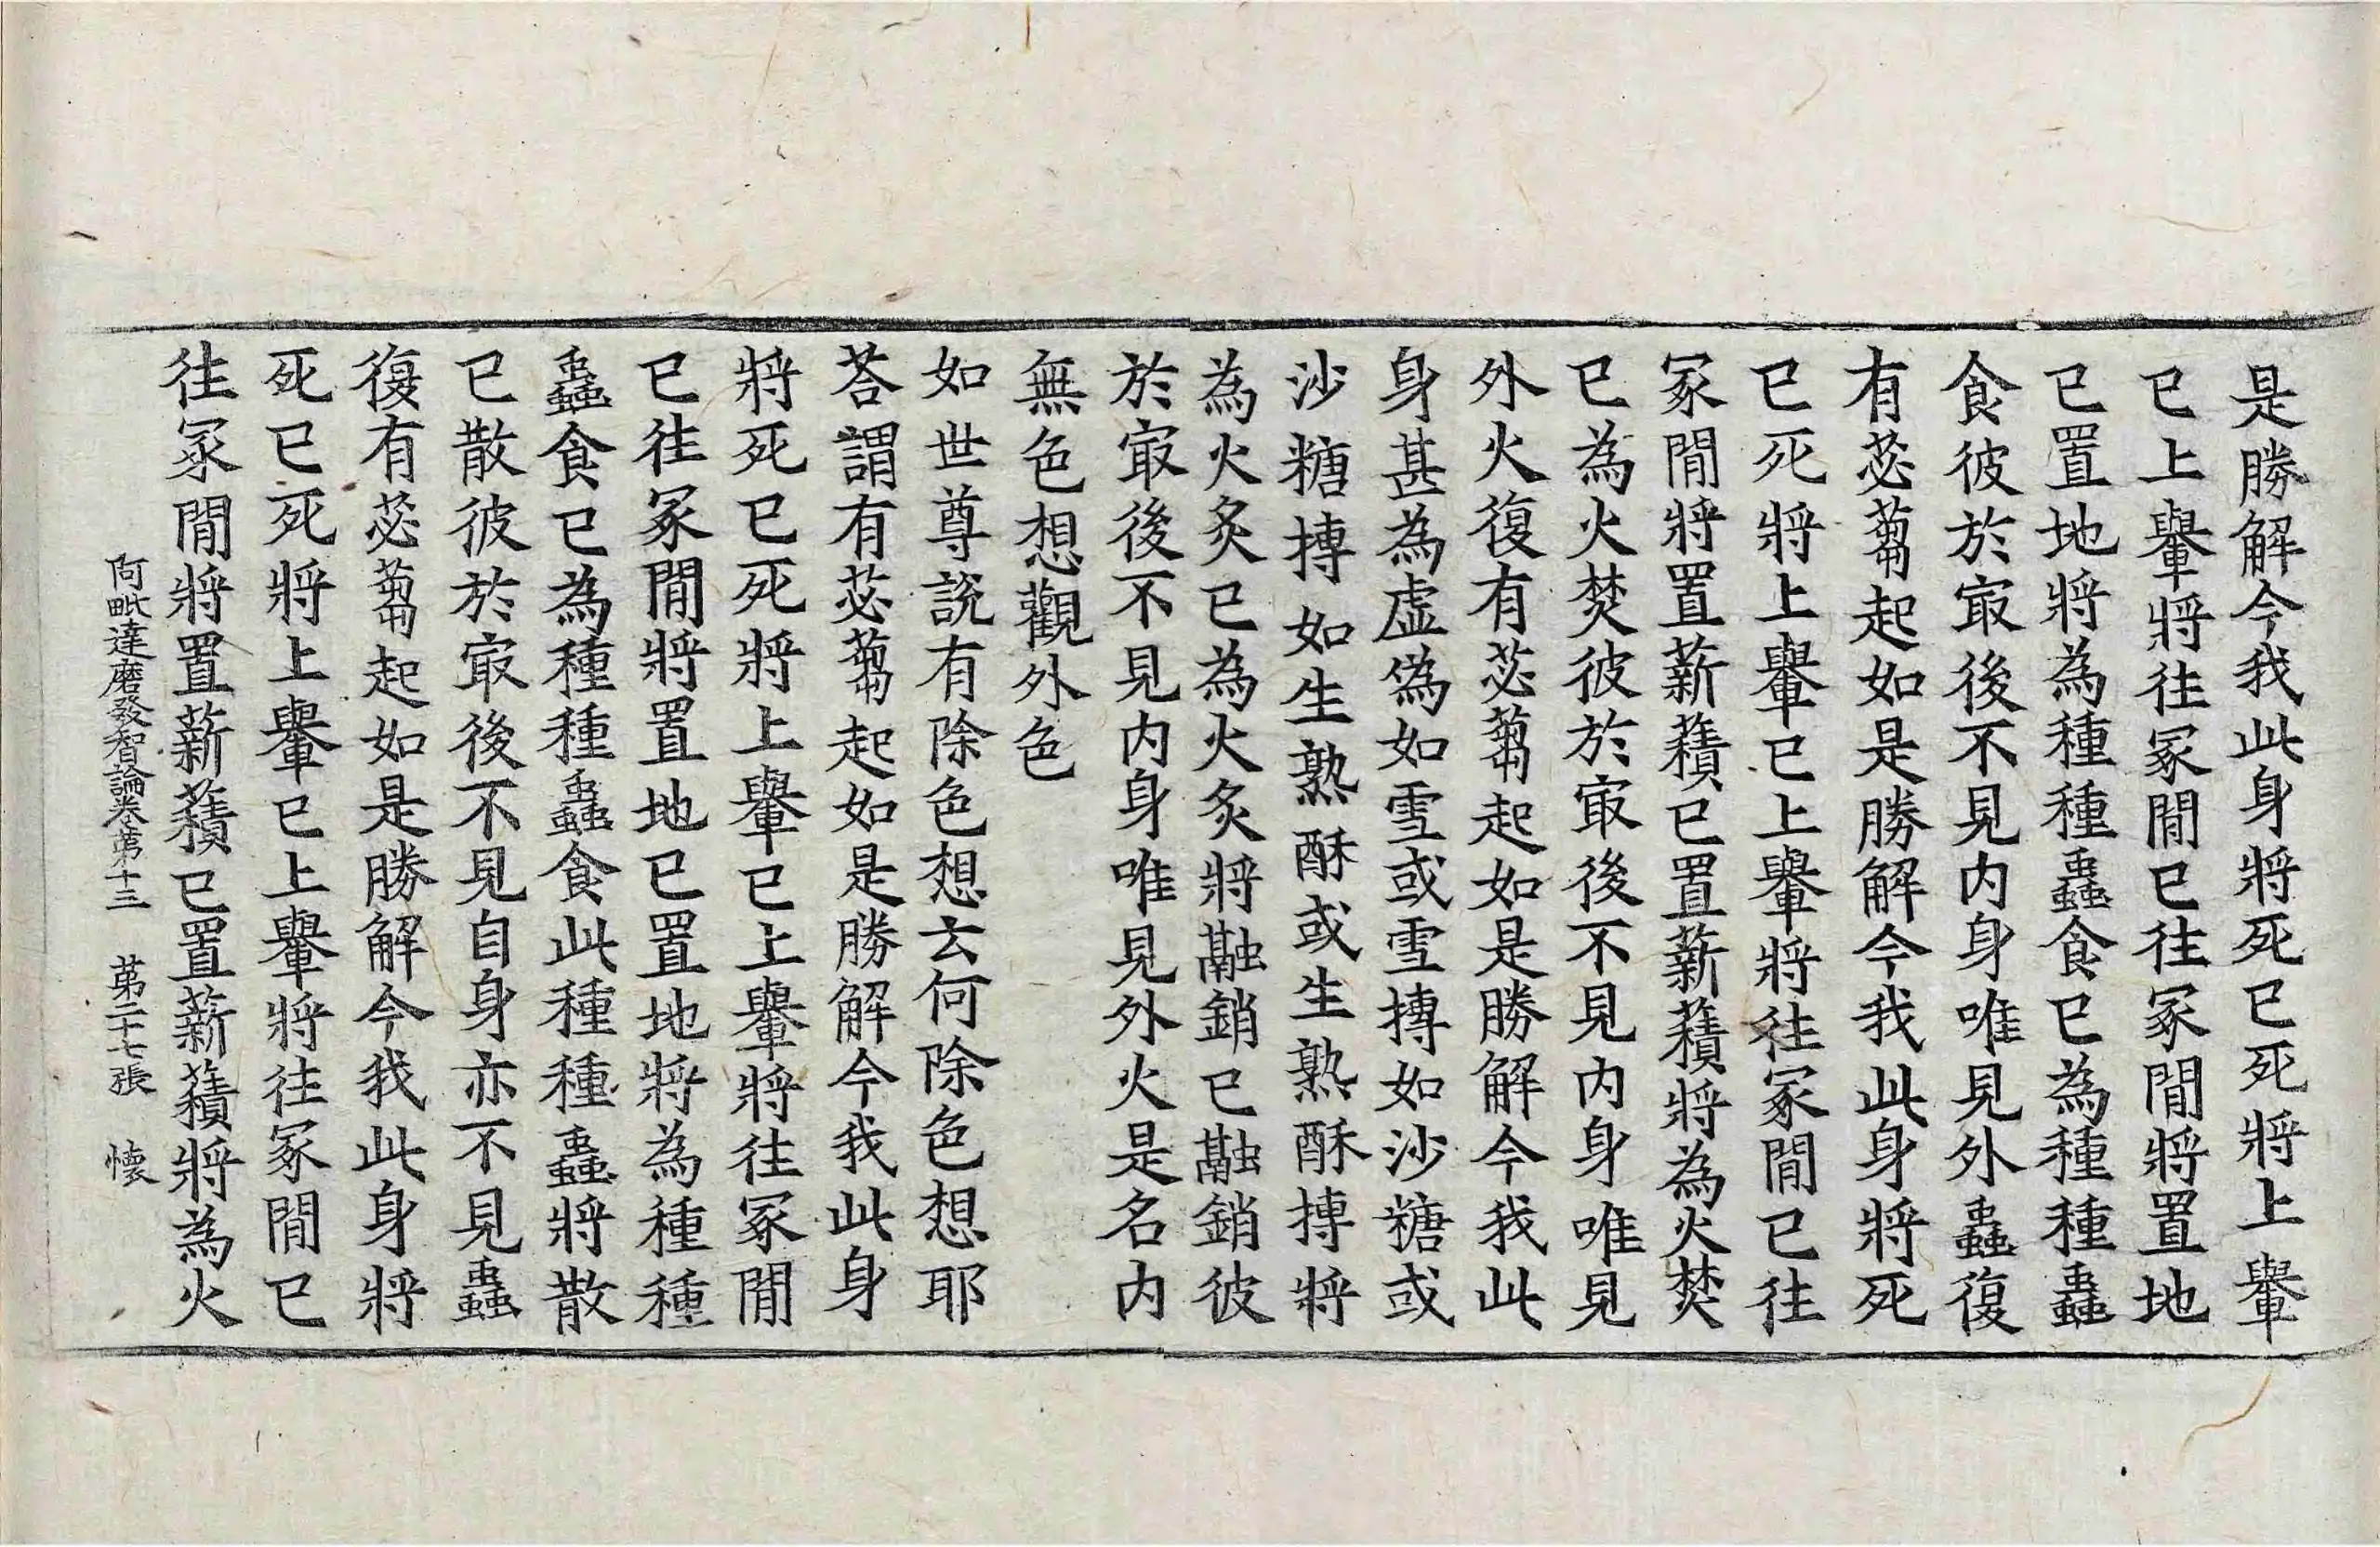 是勝解今我此身將死已死將上轝
已上轝將往冢閒已往冢閒將置地
已置地將為種種蟲食已為種種蟲
食彼於㝡後不見内身唯見外蟲復
有苾蒭起如是勝解今我此身將死
已死將上轝已上轝將往冢閒已往
冢閒將置薪𧂐已置薪𧂐將為火焚
已為火焚彼於㝡後不見内身唯見
外火復有苾蒭起如是勝解今我此
身甚為虛偽如雪或雪摶如沙糖或
沙糖摶如生熟酥或生熟酥摶將
為火炙已為火炙將融銷已融銷彼
於㝡後不見内身唯見外火是名内
無色想觀外色
如世尊說有除色想云何除色想耶
荅謂有苾蒭起如是勝解今我此身
將死已死將上轝已上轝將往冢閒
已往冢閒將置地已置地將為種種
蟲食已為種種蟲食此種種蟲將散
已散彼於㝡後不見自身亦不見蟲
復有苾蒭起如是勝解今我此身將
死已死將上轝已上轝將往冢閒已
往冢閒將置薪𧂐已置薪𧂐將為火
阿毗達磨發智論卷第十三 第二十七張 懷